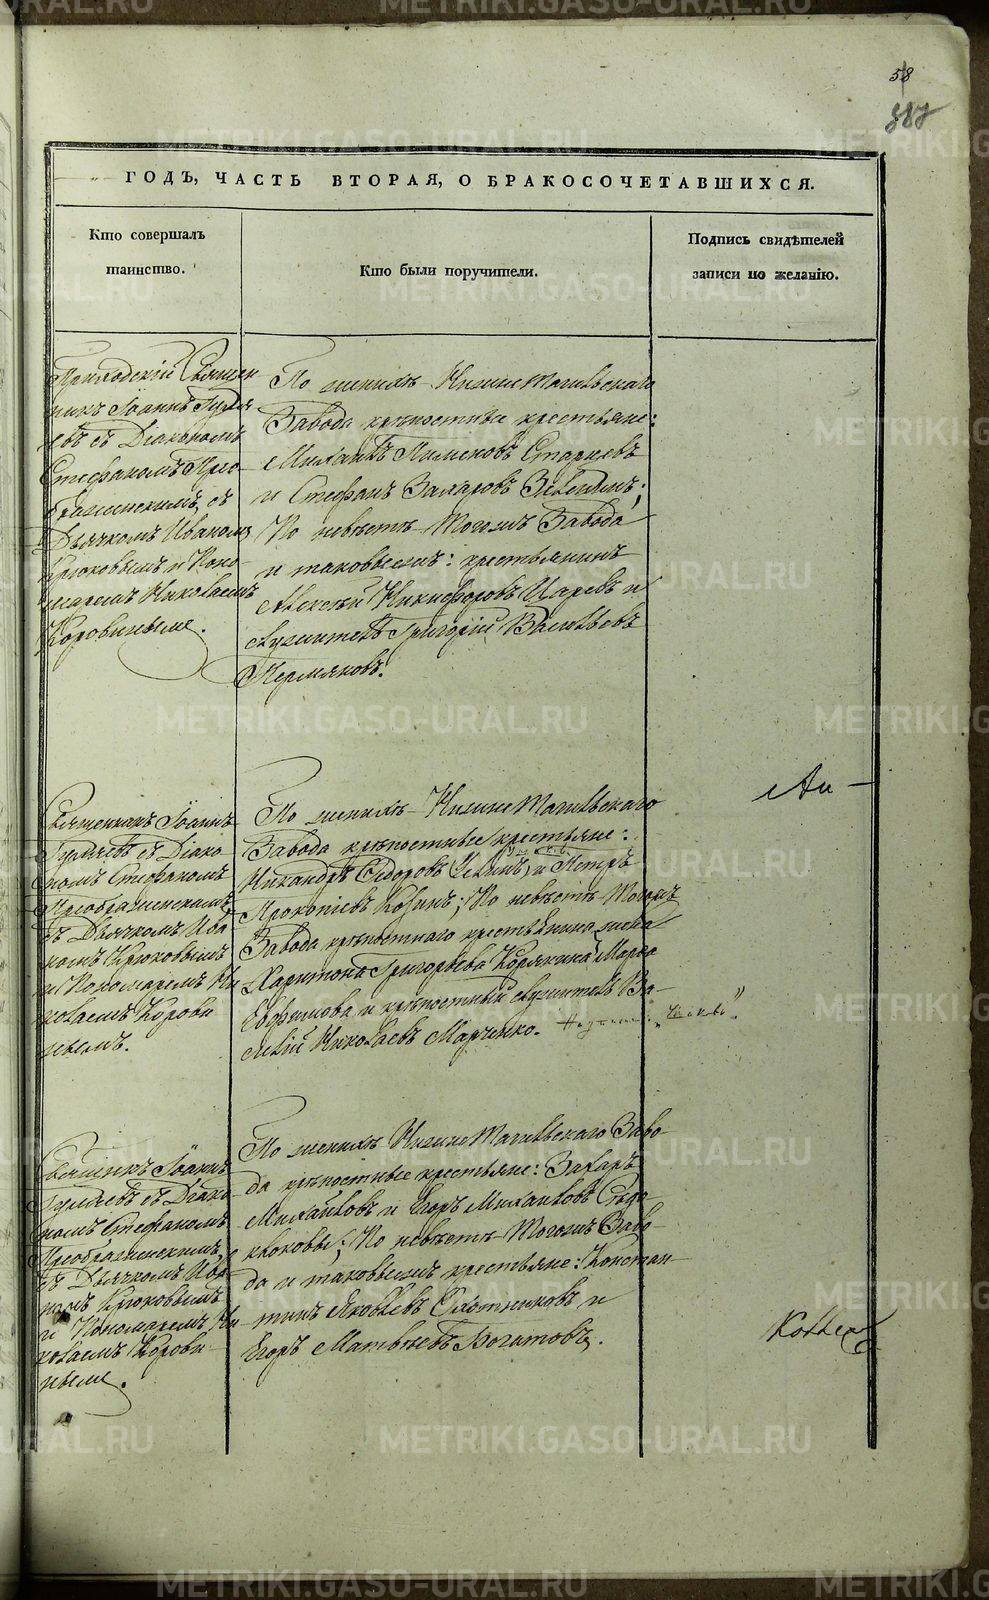 58
387
ГОДЪ, ЧАСТЬ ВТОРАЯ, О БРАКОСОЧЕТАВШИХСЯ.
Кто совершалъ
таинство.
Кто были поручители.
Подпись свидѣтелей
записи по желанію.
Приходскій Священ
никъ Іоаннъ Гуля
евъ съ Діакономъ
Стефаномъ Прео-
браженскимъ, съ
Дьячкомъ Иваномъ
Крюковымъ и Поно-
маремъ Николаемъ
Коровинымъ.
По женихѣ Нижне Тагильскаго
Завода крѣпостные крестьяне:
Михаилъ Пименовъ Старцевъ
и Стефанъ Захаровъ
По невѣстѣ Тогожъ Завода
и таковыежъ: крестьянинъ
Алексѣй Никифоровъ Царевъ и
служитель Григорій Васильевъ
Пермяковъ.
Священникъ Іоаннъ
Гуляевъ съ Діако-
номъ Стефаномъ
Преображенскимъ,
съ Дьячкомъ Ива-
номъ Крюковымъ
и Пономаремъ Ни
колаемъ Корови
нымъ.
По женихѣ Нижне Тагильскаго
Завода крѣпостные крестьяне:
Никандръ Сидоровъ и Петръ
Прокопіевъ Козинъ; По невѣстѣ Тогожъ
Завода крѣпостнаго крестьянина жена
Харитона Григорьева Корякина Марѳа
Евфимова и крѣпостный служитель Ва-
силій Николаевъ Марченко.
Ан —
Священникъ Іоаннъ
Гуляевъ съ Діако-
номъ Стефаномъ
Преображенскимъ,
съ Дьячкомъ Ива-
номъ Крюковымъ
и Пономаремъ Ни-
колаемъ Корови-
нымъ.
По женихѣ Нижне Тагильскаго Заво-
да крѣпостные крестьяне: Захаръ
Михайловъ и Егоръ Михайловъ
По невѣстѣ Тогожъ Заво-
да и таковыежъ крестьяне: Констан-
тинъ Яковлевъ Охотниковъ и
Егоръ Матвѣевъ